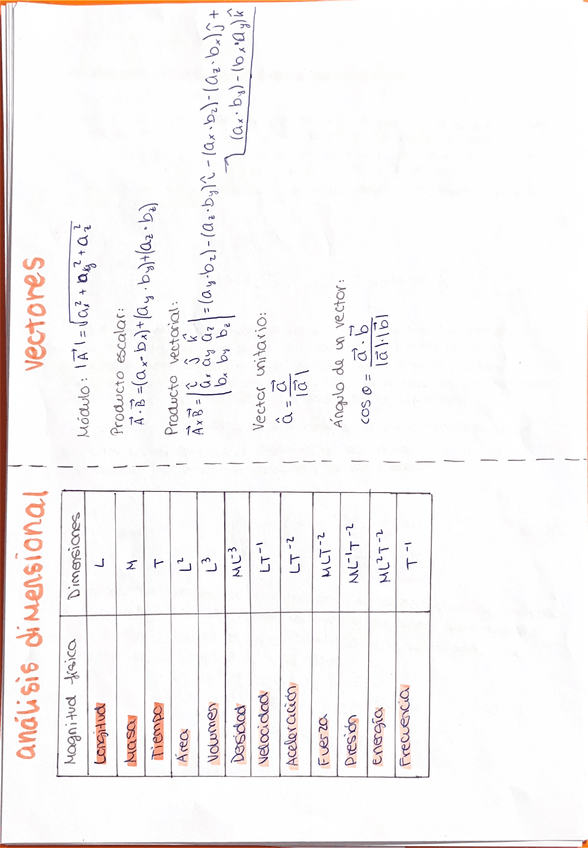 análisis dimensional
Magnitud física Dimensiones
Longitud L
Masa M
Tiempo T
Área L²
Volumen L³
Densidad ML⁻³
Velocidad LT⁻¹
Aceleración LT⁻²
Fuerza MLT⁻²
Presión ML⁻¹T⁻²
Energía ML²T⁻²
Frecuencia T⁻¹
vectores
Módulo: |A⃗| = √(aₓ² + a_y² + a_z²)
Producto escalar:
A⃗ · B⃗ = (aₓ · bₓ) + (a_y · b_y) + (a_z · b_z)
Producto vectorial:
A⃗ x B⃗ = | î ĵ k̂ | = (a_y · b_z) - (a_z · b_y) î - (aₓ · b_z) - (a_z · bₓ) ĵ +
aₓ a_y a_z
bₓ b_y b_z
(aₓ · b_y) - (bₓ · a_y) k̂
Vector unitario:
â = a⃗ / |a⃗|
Ángulo de un vector:
cos θ = a⃗ · b⃗ / |a⃗| · |b⃗|